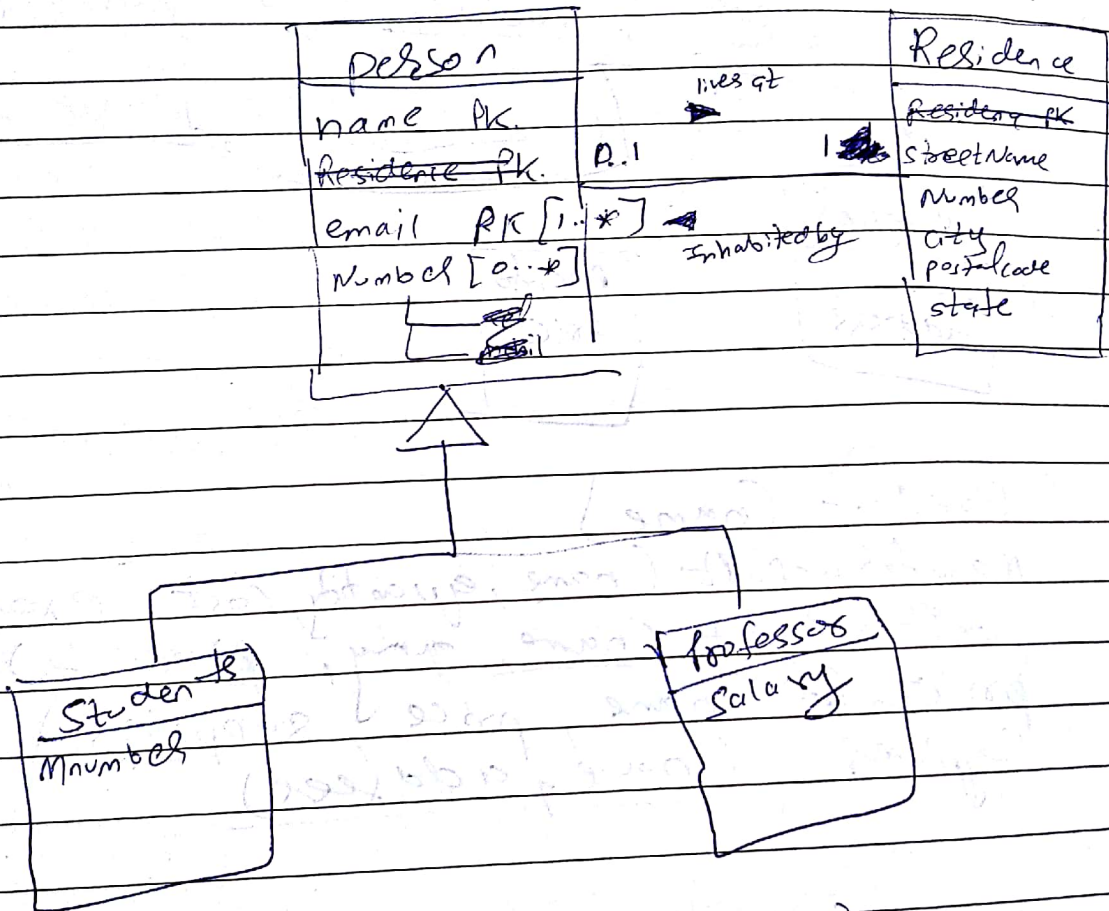 person
name PK.
Residence PK.
email PK [1..*]
Number [0..*]
lives at
0..1
1
Inhabited by
Residence
Residence PK
StreetName
Number
city
postalcode
state
Students
Mnumber
Professor
Salary